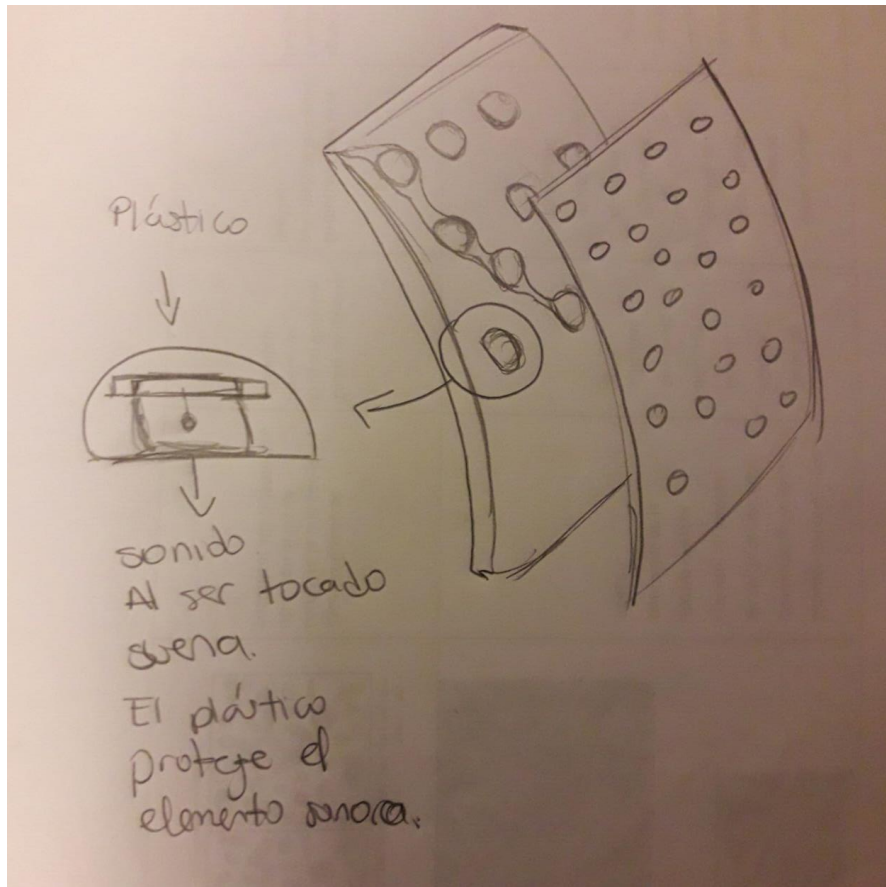 Plástico
sonido
Al ser tocado
suena.
El plástico
proteje el
elemento sonora.